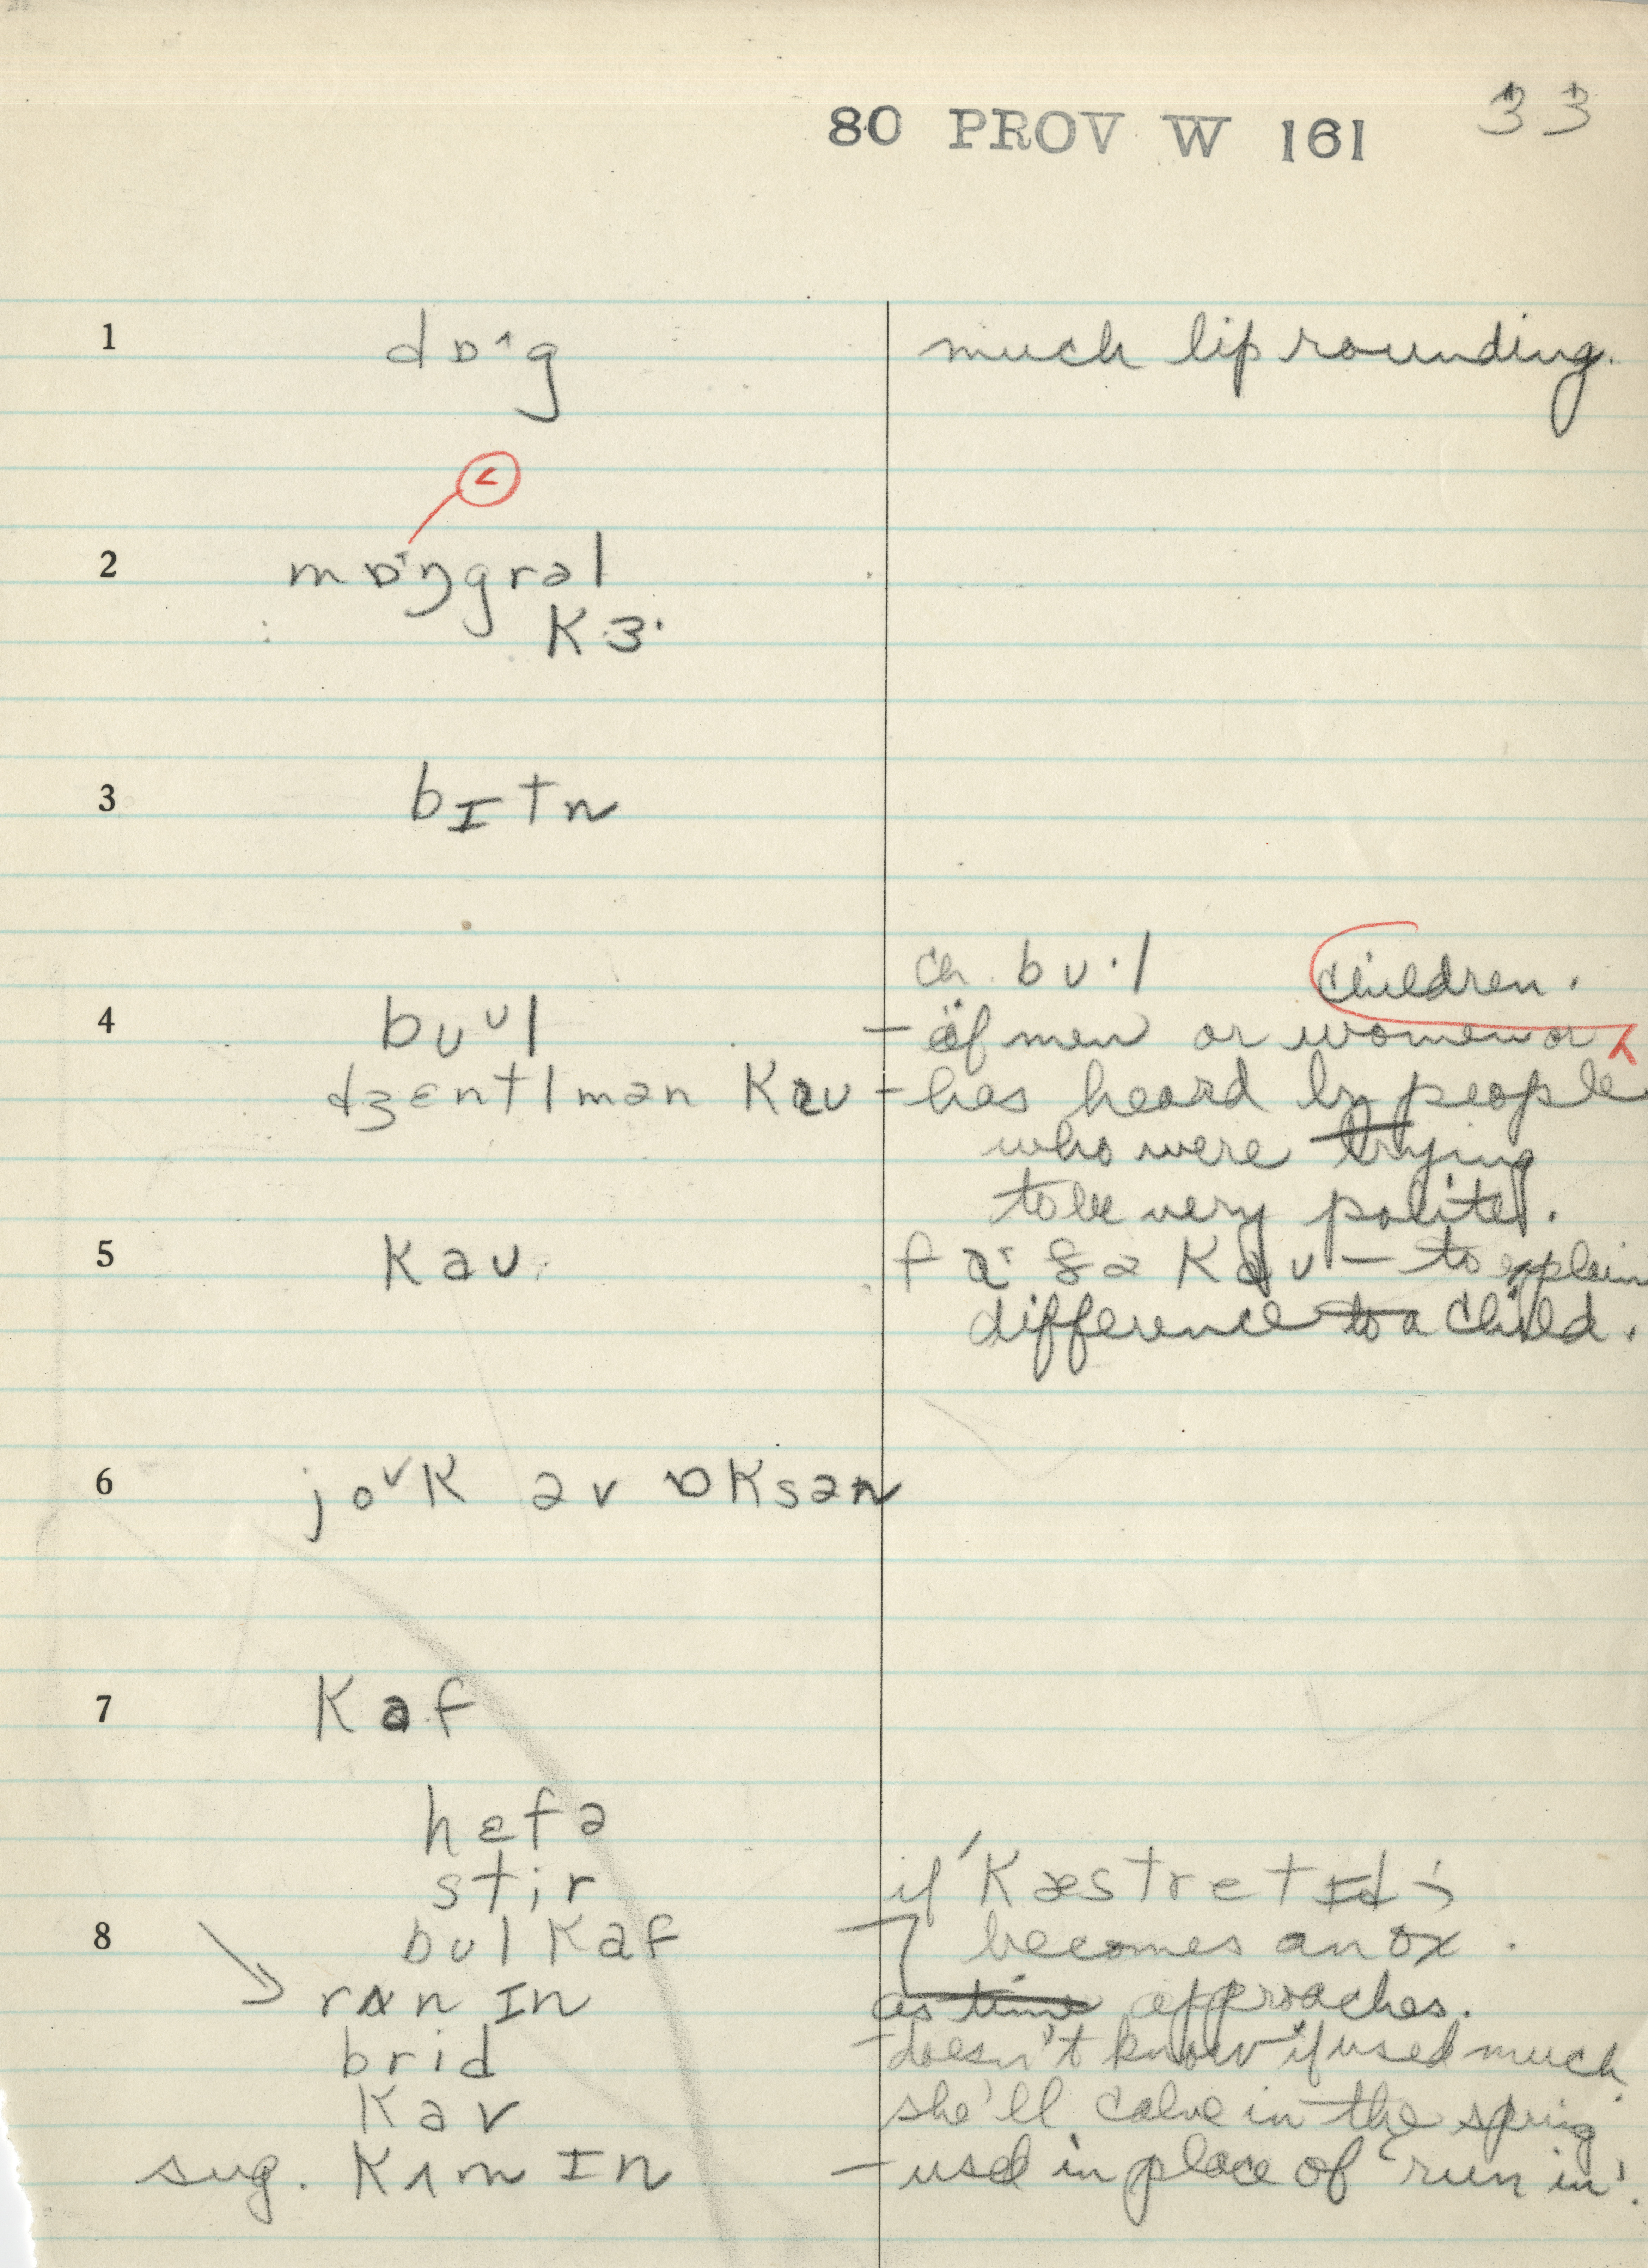 80 PROV W 161 33
1 dɒ˄g much lip rounding.
<
2 mɒŋgrəl
K ɜ·
3 bɪtn
ch. bʊ·l children.
4 bʊᴜl – of men or women or
dʒɛntlmən Kaʊ – has heard by people
who were trying
to be very polite.
5 Kaʊ – to explain
difference to a child.
6 joᴠK əv ɒKsən
7 Kaf
hɛfə
stir if 'Kæstretɪd →
8 bʊlKaf becomes an ox.
rʌn ɪn as time approaches.
brid – doesn't know if used much
Kav she'll calve in the spring
sug. Kʌm ɪn – used in place of 'run in'.